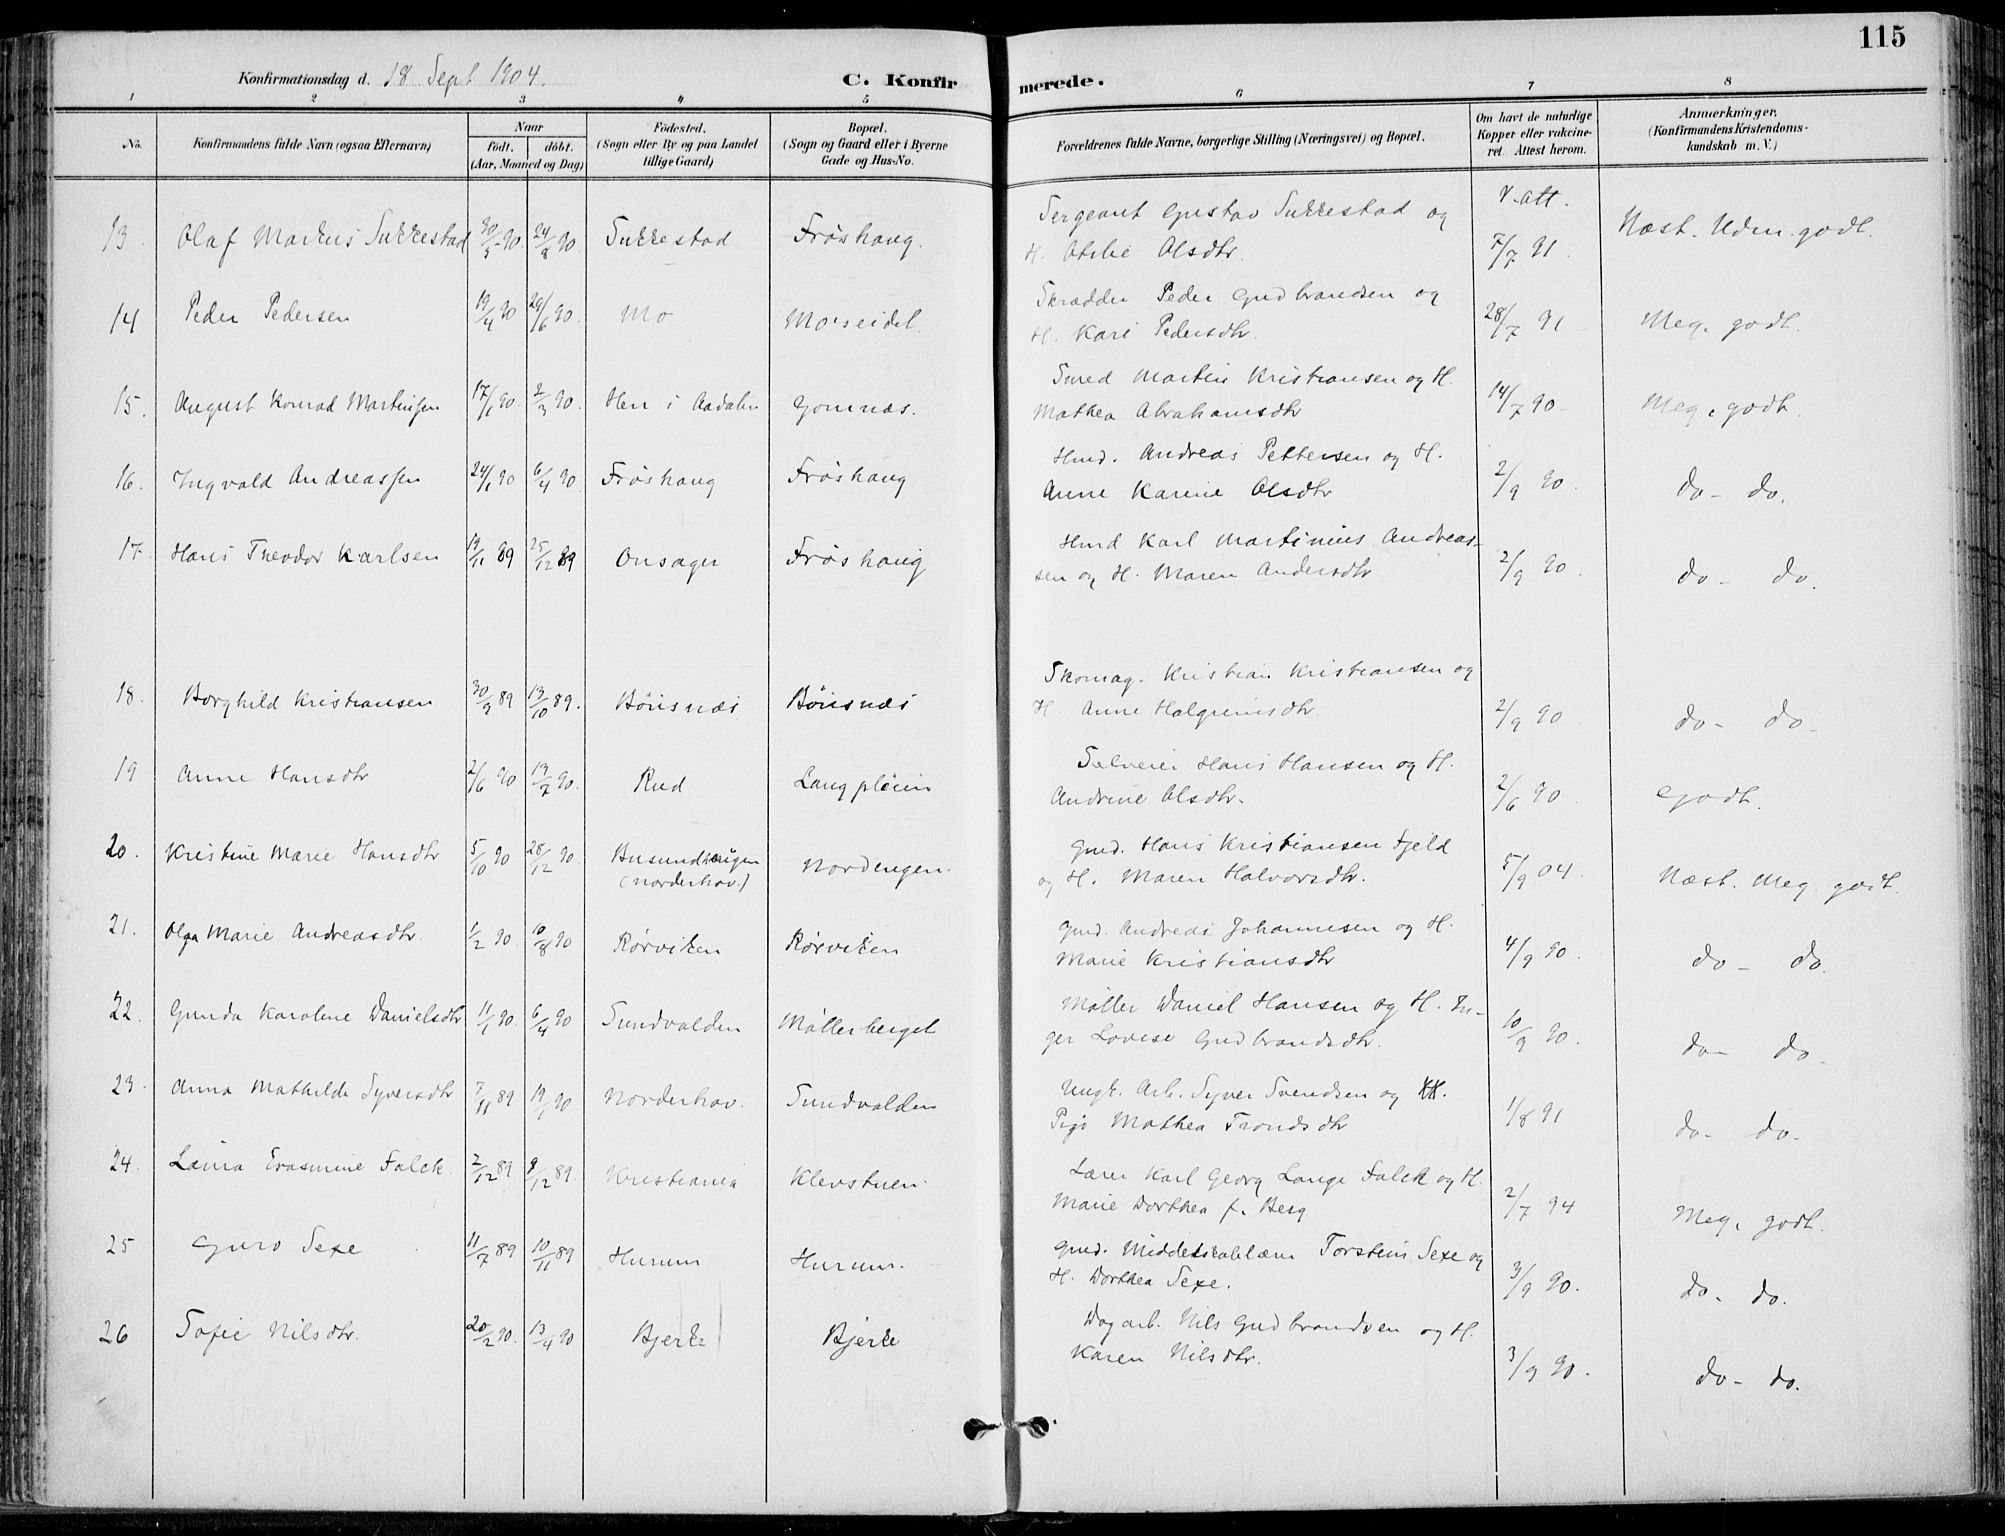 115
Konfirmationsdag d. 18 Sept 1904.
C. Konfir merede.
1 2 3 4 5 6 7 8
No. Konfirmandens fulde Navn (ogsaa Efternavn)
Naar
født. døbt.
(Aar, Maaned og Dag)
Fødested.
(Sogn eller By og paa Landet
tillige Gaard)
Bopæl.
(Sogn og Gaard eller i Byerne
Gade og Hus-No.
Forældrenes fulde Navne, borgerlige Stilling (Næringsvei) og Bopæl.
Om havt de naturlige
Kopper eller vakcine-
ret. Attest herom.
Anmærkninger.
(Konfirmandens Kristendoms-
kundskab m. V.)
13. Olaf Markus Sukkestad 30/5-90 24/8 90 Sukkestad Frøshaug. Sergeant Gustav Sukkestad og V. att.
H. Olsdtr. 7/7 91. Næst. Uden. godt.
14 Peder Pedersen 19/4 90 29/6 90. Mo Mo'seidet. Skrædder Peder Gudbrandsen og
H. Kari Pedersdtr. 28/7 91 Meg. godt.
15. August Konrad Martinssen 17/1 90. 2/3 90. Hen i Aadalen Gomnæs. Smed Martin Kristiansen og H.
Mathea Abrahamsdtr 14/7 90 Meg. godt.
16. Ingvald Andreassen 24/1 90 6/4 90. Frøshaug Frøshaug Hmd. Andreas Pettersen og H.
Anne Karine Olsdtr 2/9 90. do - do.
17. Hans Theodor Karlsen 19/11 89 25/12 89 Onsager Frøshaug Hmd Karl Martinius Andreas-
sen og H. Maren Andersdtr 2/9 90. do - do.
18. Borghild Kristiansen 30/9 89 13/10 89. Bønsnæs Bønsnæs Skomag. Kristian Kristiansen og
H. Anne Halgrimsdtr. 2/9 90 do - do -
19 Anne Hansdtr 2/6 90 19/7 90. Rud Langpløien Selveier Hans Hansen og H.
Andrine Olsdtr. 2/6 90 Godt.
20. Kristine Marie Hansdtr 5/10 90 28/12 90. Busundhaugen
(Norderhov.) Nordengen. Gmd. Hans Kristiansen Fjeld
og H. Maren Halvorsdtr. 5/9 04. Næst. Meg. godt.
21. Olga Marie Andreasdtr. 1/2 90. 10/8 90 Rørviken Rørviken Gmd. Andreas Johannesen og H.
Marie Kristiansdtr 4/9 90. do - do.
22. Gunda Karoline Danielsdtr 11/1 90. 6/4 90 Sundvolden Møllerberget Møller Daniel Hansen og H. In-
ger Lovise Gudbrandsdtr. 10/9 90. do - do -
23. Anna Mathilde Syversdtr 7/11 89 19/1 90 Norderhov. Sundvolden Ungk. Arb. Syver Svendsen og
Pige Mathea Trondsdtr 1/8 91 do - do -
24. Erasmine Falck. 2/12 89 9/12 89. Kristiania Klevstuen. Lærer Karl Georg Lange Falck og H.
Marie Dorthea f. Berg 2/7 94 Meg. godt.
25 Guro Sexe 11/7 89 10/11 89 Hurum Hurum. Gmd. Middelskolelærer Torstein Sexe og
H. Dorthea Sexe. 3/9 90. do. do.
26 Sofie Nilsdtr. 20/2 90. 13/4 90 Bjerke Bjerke Dagarb. Nils Gudbrandsen og H.
Karen Nilsdtr. 3/9 90. do - do.